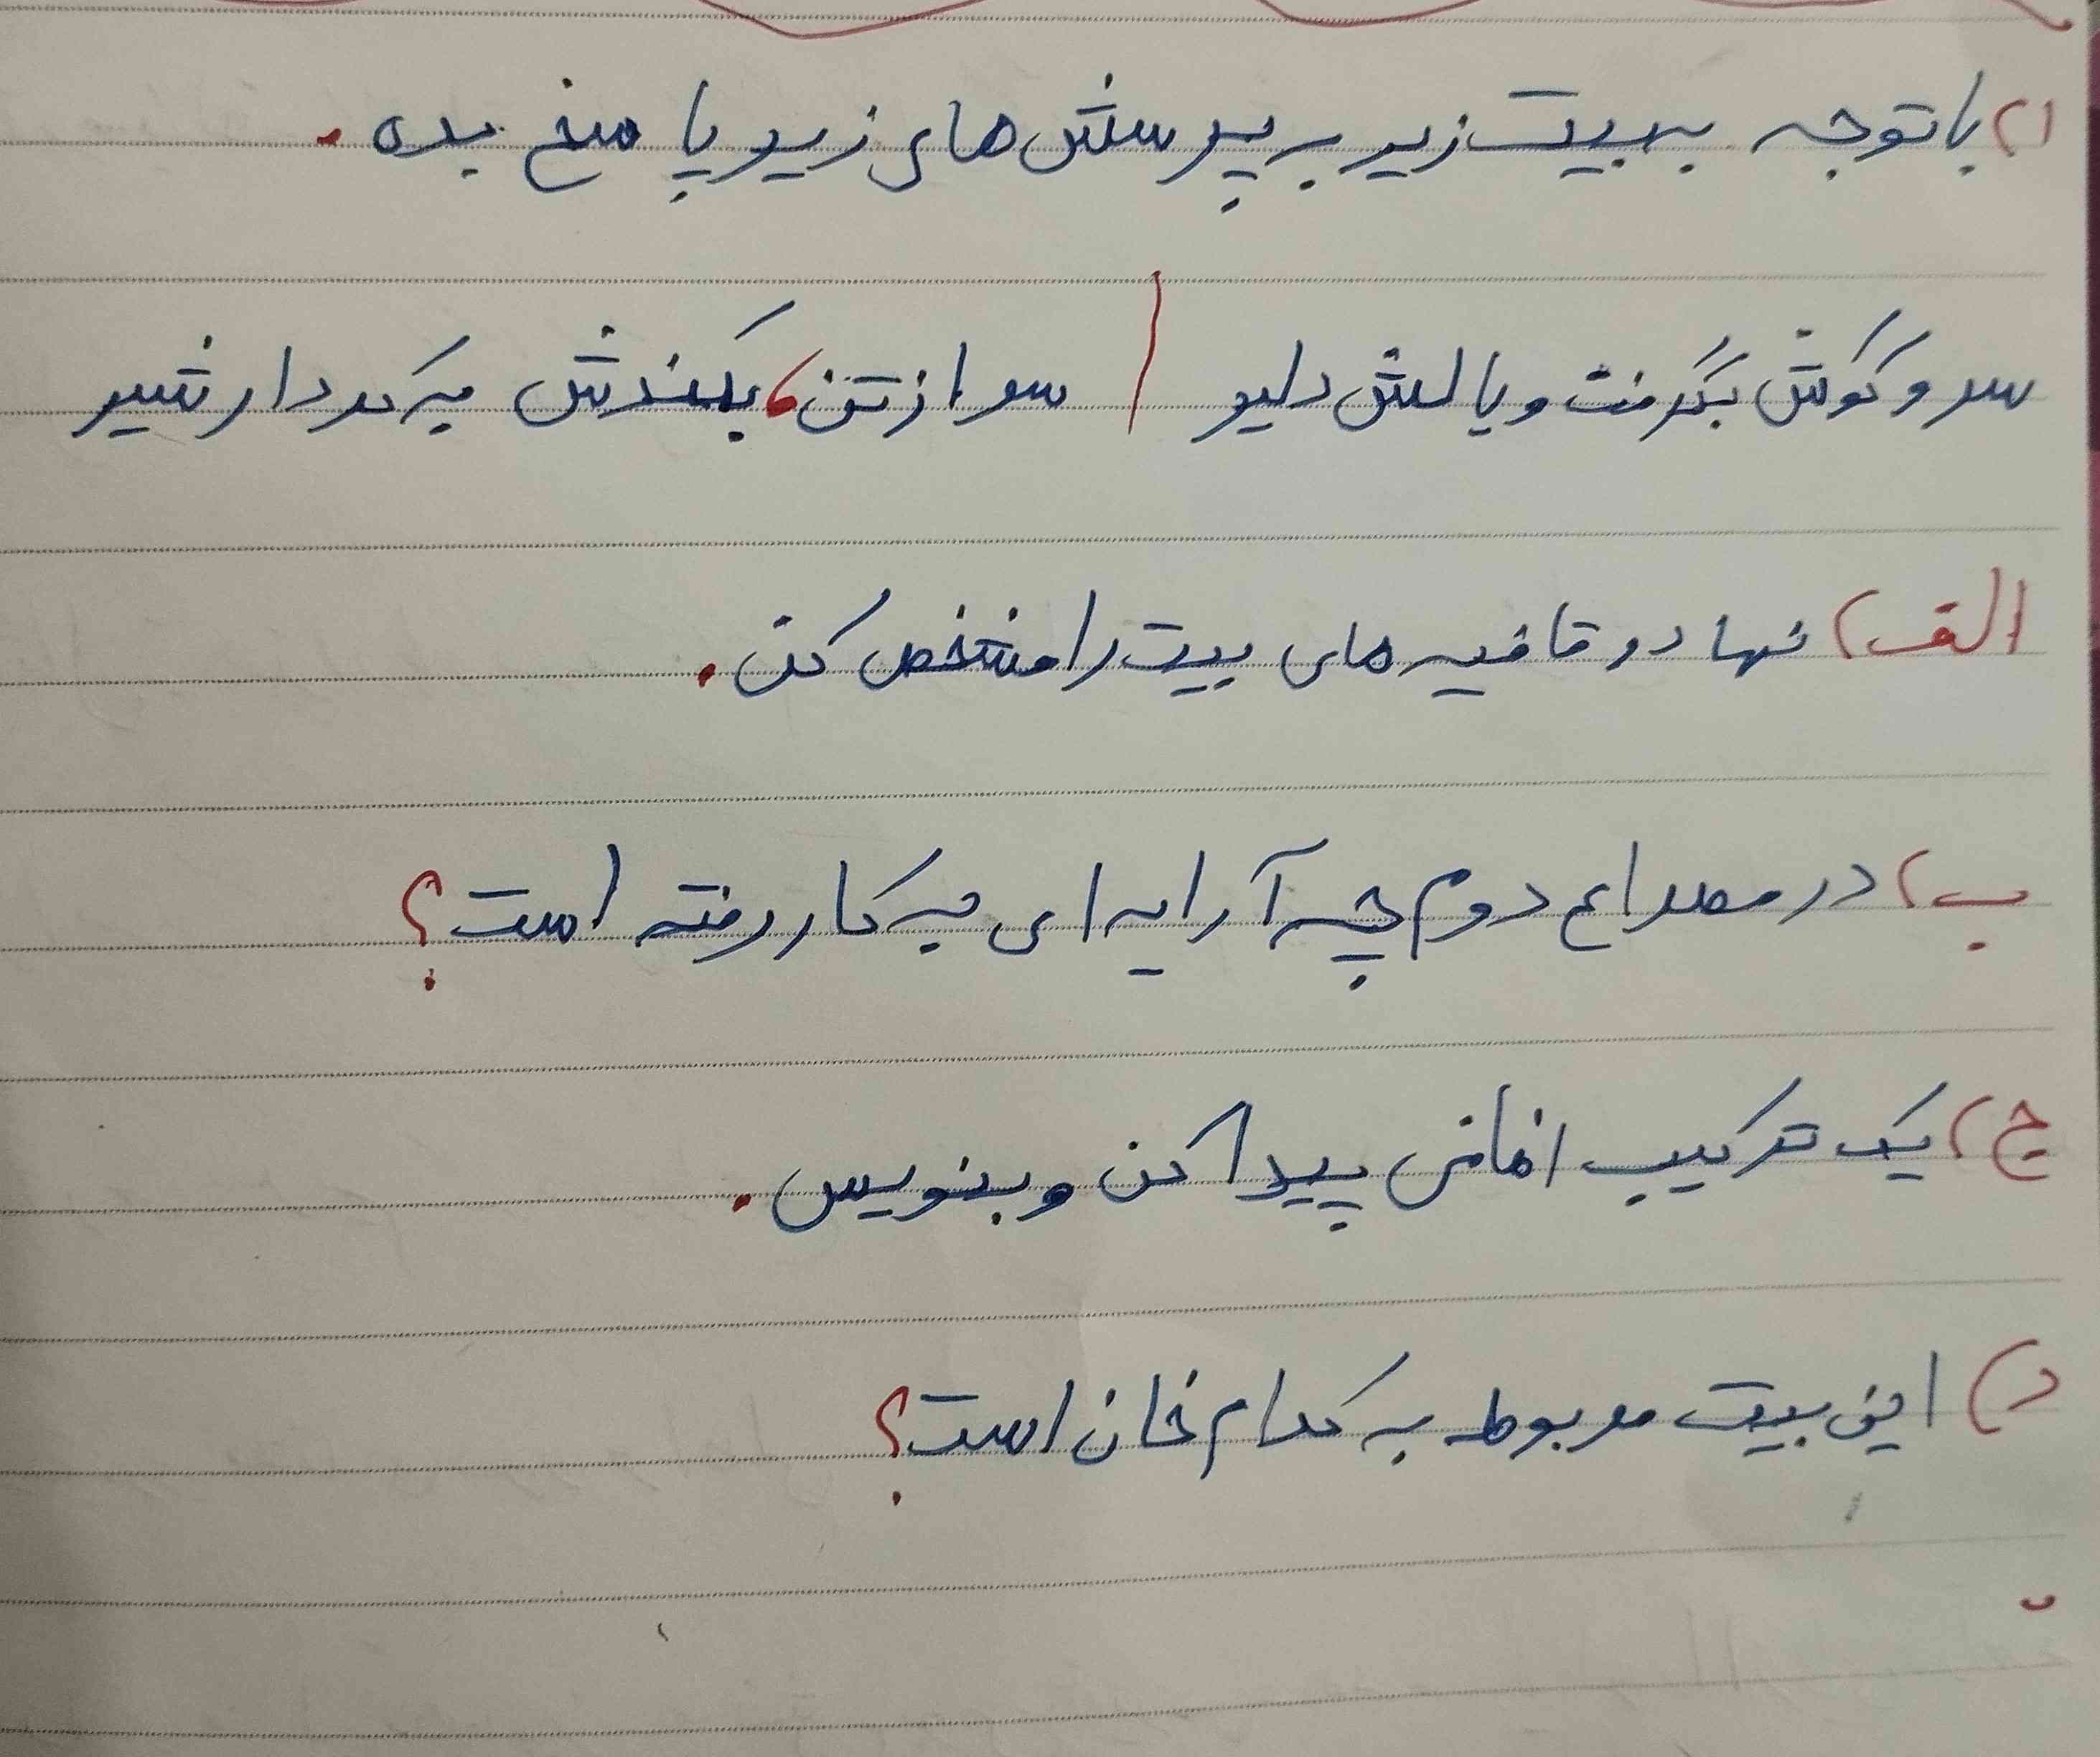 ۱) با توجه به بیت زیر به پرسش های زیر پاسخ بده.
سر و گوش بگرفت و یالش دلیر | سر از تن، بکندش به کردار شیر
الف) نهاد و قافیه های بیت را مشخص کن.
ب) در مصراع دوم چه آرایه ای به کار رفته است؟
ج) یک ترکیب اضافی پیدا کن و بنویس.
د) این بیت مربوط به کدام خان است؟